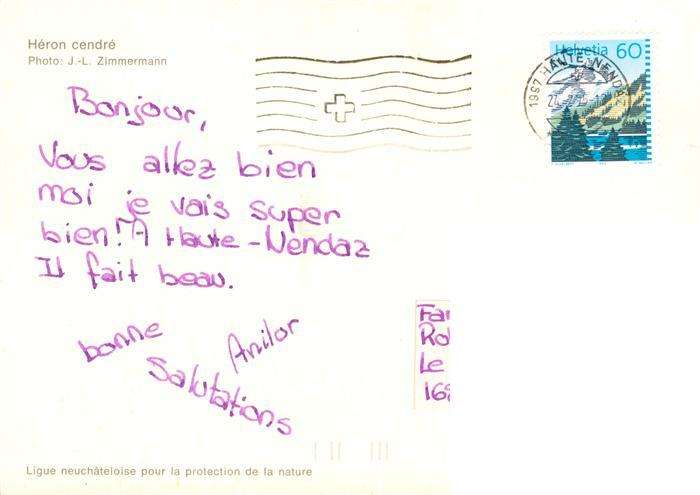 Héron cendré
Photo: J.-L. Zimmermann
Helvetia 60
1997 HAUTE-NENDAZ
Bonjour,
Vous allez bien
moi je vais super
bien! A Haute-Nendaz
Il fait beau.
bonne
Salutations
Anilor
Fa
Ro
Le
Ligue neuchâteloise pour la protection de la nature